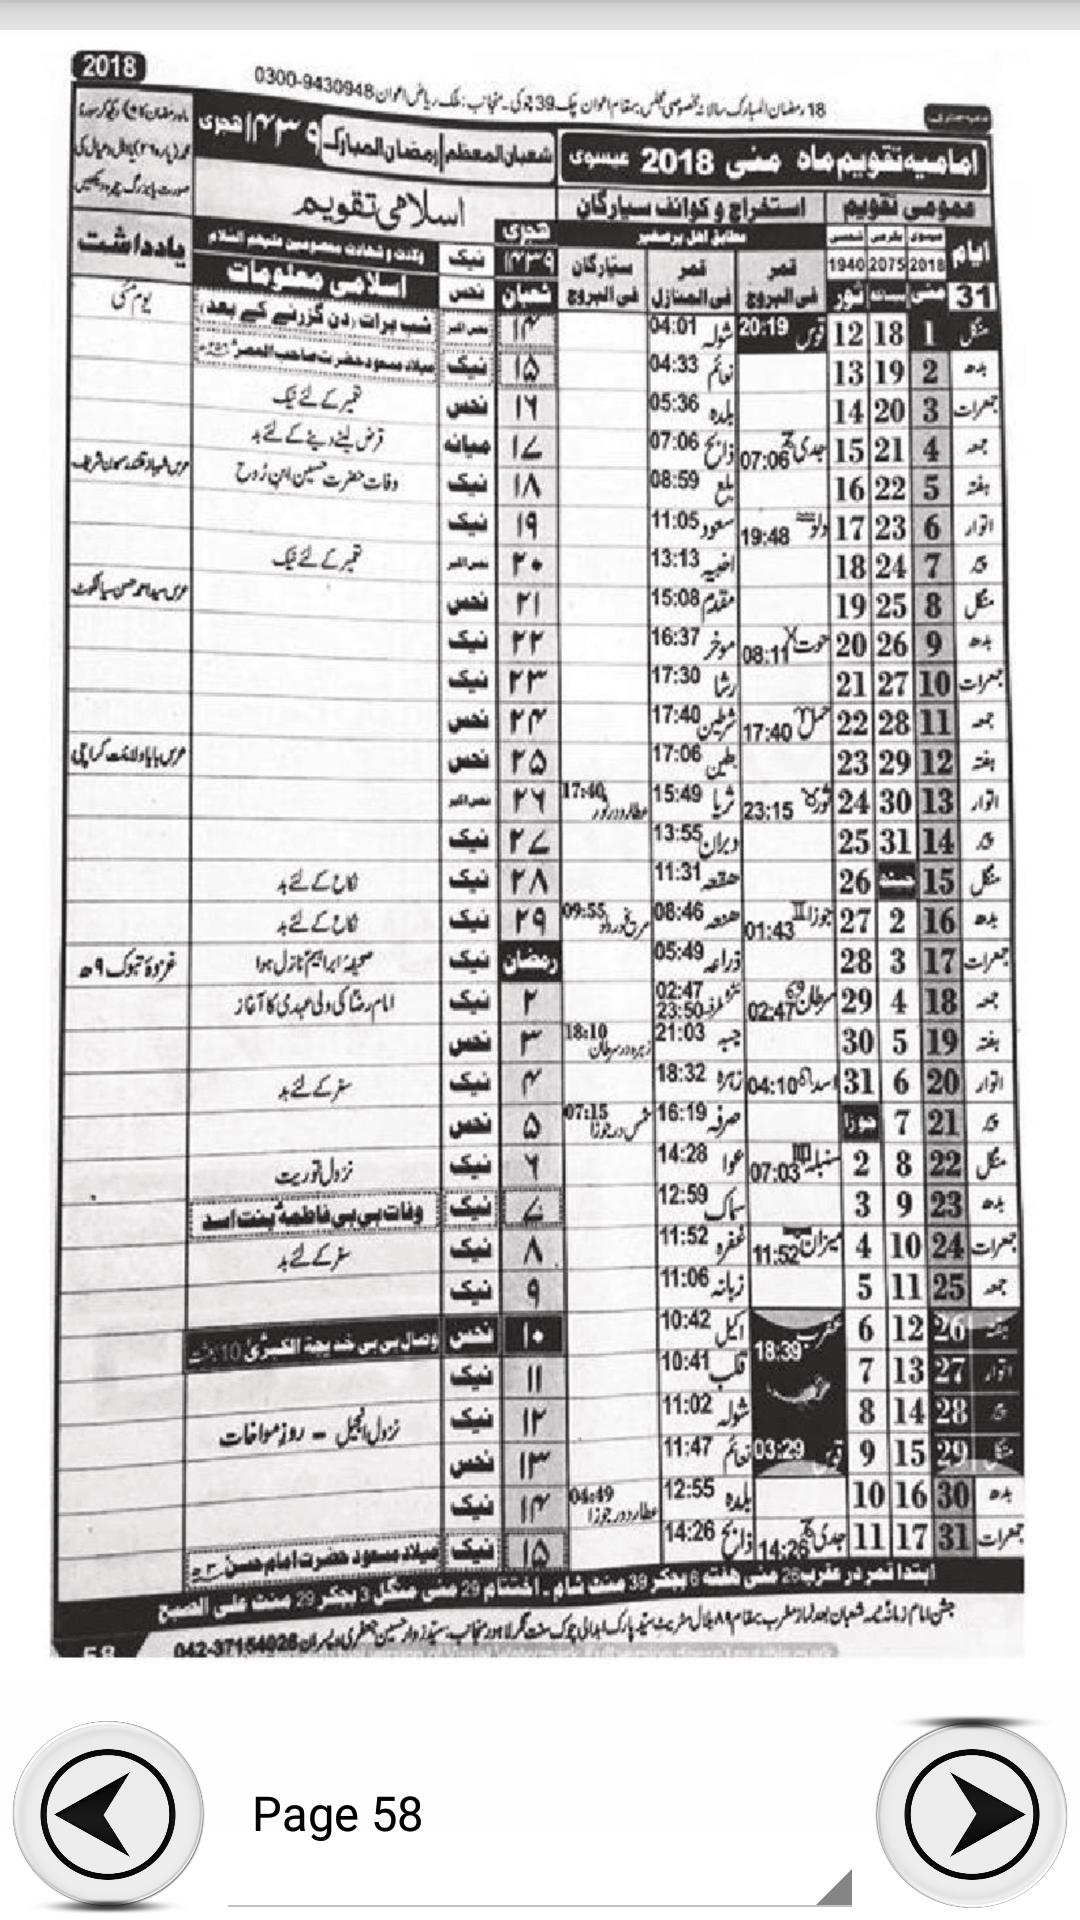 2018
18 رمضان المبارک سالانہ خصوصی مجلس بمقام اعوان چک 39 چوکی۔ منجانب: ملک ریاض اعوان 0300-9430948
امامیہ تقویم ماہ مئی 2018 عیسوی
شعبان المعظم رمضان المبارک ۱۴۳۹ ہجری
عمومی تقویم
استخراج و کوائف سیارگان
اسلامی تقویم
مطابق اہل برصغیر
ولادت و شہادت معصومین علیہم السلام
یادداشت
ایام عیسوی 2018 بکرمی 2075 شمسی 1940 قمر فی البروج قمر فی المنازل سیارگان فی البروج ہجری ۱۴۳۹ نیک نحس اسلامی معلومات
31 مئی بیساکھ ثور شعبان
منگل 1 18 12 قوس 20:19 شولہ 04:01 ۱۴ نحس اکبر شب برات (دن گزرنے کے بعد) یوم مئی
بدھ 2 19 13 نعائم 04:33 ۱۵ نیک میلاد مسعود حضرت صاحب العصرؑ
جمعرات 3 20 14 بلدہ 05:36 ۱۶ نحس تعمیر کے لئے نیک
جمعہ 4 21 15 جدی 07:06 ذابح 07:06 ۱۷ میانہ قرض لینے دینے کے لئے بد
ہفتہ 5 22 16 بلع 08:59 ۱۸ نیک وفات حضرت حسین ابن روح عرس شہباز قلندر سہون شریف
اتوار 6 23 17 دلو 19:48 سعود 11:05 ۱۹ نیک
پیر 7 24 18 اخبیہ 13:13 ۲۰ نحس اکبر تعمیر کے لئے نیک
منگل 8 25 19 مقدم 15:08 ۲۱ نحس عرس سید احمد حسن سیالکوٹ
بدھ 9 26 20 حوت 08:11 موخر 16:37 ۲۲ نیک
جمعرات 10 27 21 رشا 17:30 ۲۳ نیک
جمعہ 11 28 22 حمل 17:40 شرطین 17:40 ۲۴ نحس
ہفتہ 12 29 23 بطین 17:06 ۲۵ نحس عرس بابا ولائت کراچی
اتوار 13 30 24 ثور 23:15 ثریا 15:49 عطارد در ثور 17:40 ۲۶ نحس اکبر
پیر 14 31 25 دبران 13:55 ۲۷ نیک
منگل 15 جیٹھ 26 ہقعہ 11:31 ۲۸ نیک نکاح کے لئے بد
بدھ 16 2 27 جوزا 01:43 ہنعہ 08:46 مریخ در دلو 09:55 ۲۹ نیک نکاح کے لئے بد
جمعرات 17 3 28 ذراعہ 05:49 رمضان نیک صحیفہ ابراہیمؑ نازل ہوا غزوۂ تبوک ۹ھ
جمعہ 18 4 29 سرطان 02:47 نثرہ طرفہ 02:47 23:50 ۲ نیک امام رضاؑ کی ولی عہدی کا آغاز
ہفتہ 19 5 30 جبہہ 21:03 زہرہ در سرطان 18:10 ۳ نحس
اتوار 20 6 31 اسد 04:10 زہرہ 18:32 ۴ نیک سفر کے لئے بد
پیر 21 7 جوزا صرفہ 16:19 شمس در جوزا 07:15 ۵ نحس
منگل 22 8 2 سنبلہ 07:03 عوا 14:28 ۶ نیک نزول توریت
بدھ 23 9 3 سماک 12:59 ۷ نیک وفات بی بی فاطمہؑ بنت اسد
جمعرات 24 10 4 میزان 11:52 غفرہ 11:52 ۸ نیک سفر کے لئے بد
جمعہ 25 11 5 زبانہ 11:06 ۹ نیک
ہفتہ 26 12 6 عقرب 18:39 اکلیل 10:42 ۱۰ نحس وصال بی بی خدیجۃ الکبریٰؑ 10 بعثت
اتوار 27 13 7 قلب 10:41 ۱۱ نیک
پیر 28 14 8 شولہ 11:02 ۱۲ نیک نزول انجیل – روز مواخات
منگل 29 15 9 قوس 03:29 نعائم 11:47 ۱۳ نحس
بدھ 30 16 10 بلدہ 12:55 عطارد در جوزا 04:49 ۱۴ نیک
جمعرات 31 17 11 جدی 14:26 ذابح 14:26 ۱۵ نیک میلاد مسعود حضرت امام حسنؑ ۳ھ
ابتدا قمر در عقرب 26 مئی ہفتہ 6 بجکر 39 منٹ شام۔ اختتام 29 مئی منگل 3 بجکر 29 منٹ علی الصبح
042-37154026
58
Page 58